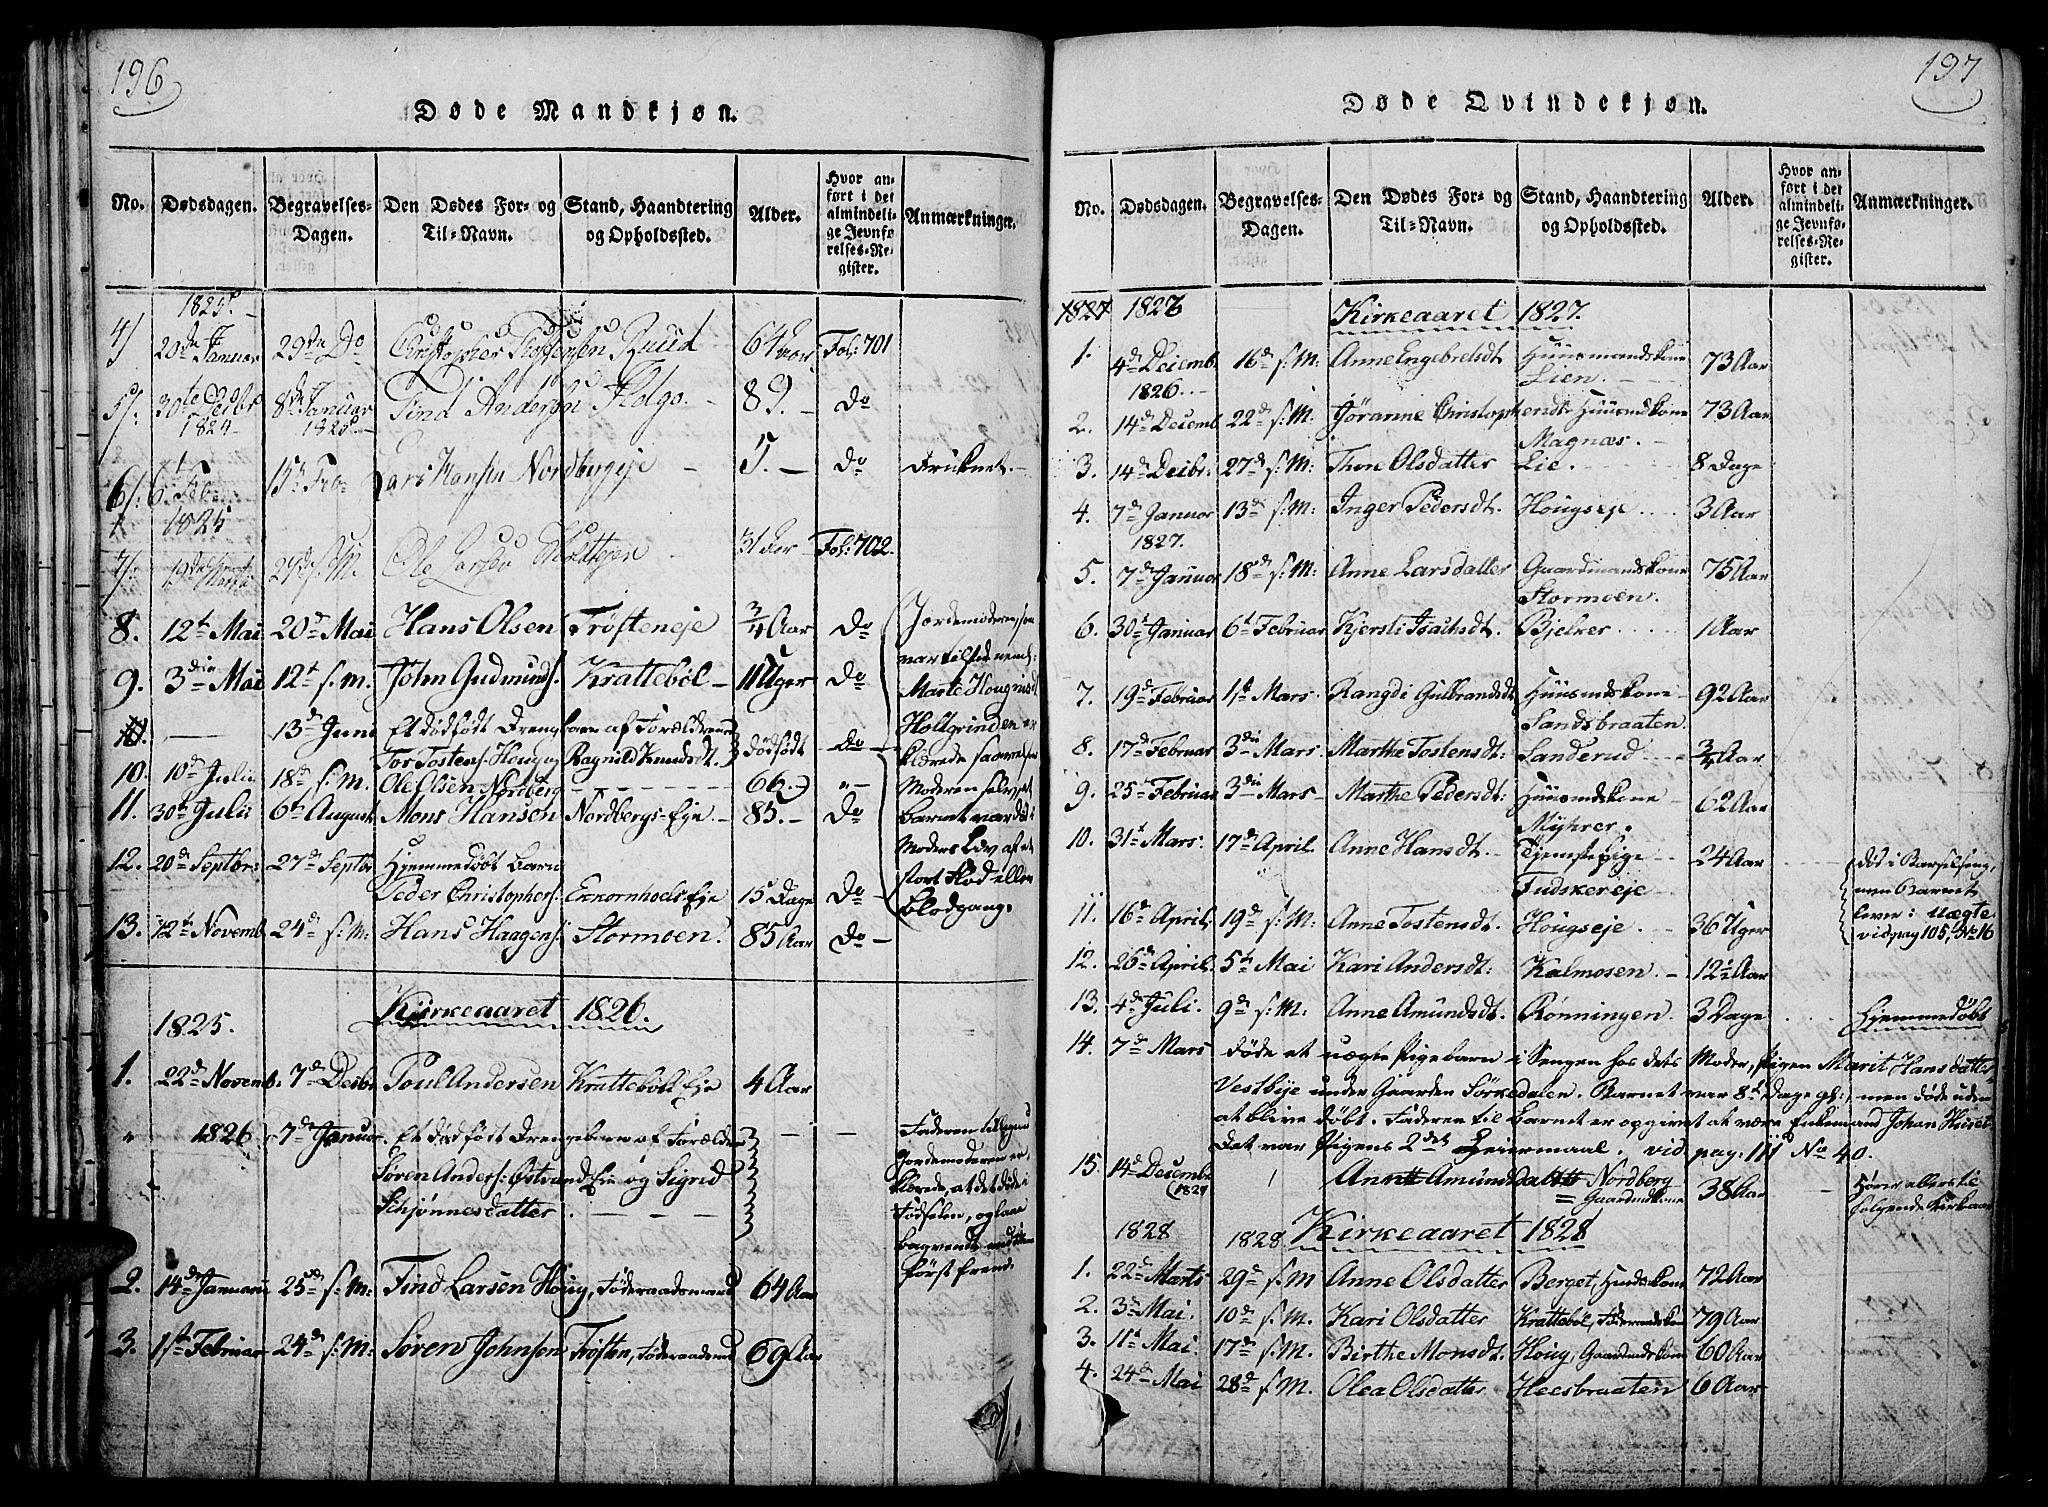 196
Døde Mandkjøn.
No. Dødsdagen. Begravelses-Dagen. Den Dødes For- og Til-Navn. Stand, Haandtering og Opholdssted. Alder. Hvor anført i det almindelige Jevnførelses-Register. Anmærkninger.
1825
4) 20de Januar 29de Do Christopher Ruud 64 Fol: 701
5/. 30te Decbr 1824 8de Januar 1825 Find Andersen 89. – Do
6/. 6. Feb. 1825 15de Feb. Lars Hansen Nordbergeje – 5. – Do Druknet. –
7/. 19de Martii 24de s. M. Ole Larsen – Fol: 702
8. 12te Mai 20de Mai Hans Olsen Trøfteneje 3/4 Aar Do
9. 3die Mai 12t s. m. John Gudmunds. Kratteböl – 11 Uger Do
Jordemoderen, som
var tilstede nemlig:
Marte Hougnæs
Holtgrinden er-
klærede samme for
Moderen selv, at
Barnet var død i
Moders Liv af et
stort Stød eller
Blodgang.
10. — 13d Juni Et dødfødt Drengebarn af Forældrene
Tor Tostens. Houg og Ragnild Knudsdt. dødfødt – Do –
10. 10d Julii 18d s. M. Ole Olsen Nordberg – – – 66. „–
11. 30te Julii 6te August Mons Hansen Nordbergs-Eje. – 85. – Do
12. 20d Septbr: 27d Septbr Hjemmedøbt Barn
Peder Christophers. Ekornhols-Eje 15 Dage Do –
13. 12te Novemb. 24d s. M: Hans Haagens: Stormoen. 85 Aar Do –
Kirkeaaret 1826.
1825.
1. 22d Novemb. 7d Decbr Poul Andersen Kratteböls Eje 4 Aar
„ 1826 7d Januar. Et dødfødt Drengebarn af Forældre
Søren Anders: Østrand Eie og Sigrid
Schjönnesdatter. – – –
Faderen tilligemed
Jordemoderen er-
klærede, at det døde i
Fødselen, og laae
bagvendt med
først frem.
2. 14d Januarii 25de s. M: Find Larsen Houg, Føderaadsmand 64 Aar
3. 1ste Februar 24de s: M: Søren Johnsen Trøften, Føderaadsmd 69 Aar
197
Døde Qvindekjøn.
No. Dødsdagen. Begravelses-Dagen. Den Dødes For- og Til-Navn. Stand, Haandtering og Opholdssted. Alder. Hvor anført i det almindelige Jevnførelses-Register. Anmærkninger.
1827 1826 Kirkeaaret 1827.
1. 4d Decemb. 1826. 16d s. M: Anne Engebretsdt Huusmandskone Lien. – – 73 Aar
2. 14d Decemb. 22d s. M. Jøranne Christophersdt: Huusmdskone Magnæs. – 73 Aar
3. 14d Decbr: 27d s: M: Thore Olsdatter Lie. 8 Dage
4. 7d Januar 1827. 13d s: M: Inger Pedersdt. Hougseje 3 Aar
5. 7d Januar 18d s: M: Anne Larsdatter Gaardmandskone Stormoen. 75 Aar
6. 30te Januar 6te Februar Kjersti Isachsdt. Bjelker 1 Aar
7. 19d Februar 1ste Mars. Rangdi Gulbrandsdt Huusmdskone Sandsbraaten. 92 Aar
8. 17d Februar 3die Mars. Marthe Tostensdt: Sanderud 3/4 Aar
9. 25te Februar 3die Mars – Marthe Pedersdt: Huusmdskone – Myhrer. 62 Aar
10. 31te Mars. 17d April. Anne Hansdt. – Tjenstepige Tudskereje 24 Aar død i Barselseng,
men Barnet
lever: Uægte
vid pag 105, No 16
11. 16d April. 19d s: M: Anne Tostensdt: Hougseje. 36 Uger
12. 26d April. 5te Mai Kari Andersdt: Kalmosen. – 12½ Aar
13. 4d Juli. 9d s: M: Anne Amundsdt. Rønningen. 3 Dage Hjemmedøbt
14. 7d Mars døde et uægte Pigebarn i Sengen hos dets Moder, Pigen Marit Hansdatter
Vestbyeje under Gaarden Sørkedalen. Barnet var 8te Dage gl:, men døde uden
at blive døbt. Faderen til Barnet er opgivet at være Enkemand Johan
Det var Pigens 2det Leiermaal. vid pag: 111 No 40.
15. 14d Decembr 1827 Anne Amundsdatter Nordberg
= Gaardmdskone 38 Aar – Hører ellers til
følgende Kirkeaar
1828 1828 Kirkeaaret 1828
1. 22d Marts 29d s: M Anne Olsdatter Berget, Huusmdskone 72 Aar
2. 3die Mai. 10d s: M. Kari Olsdatter Kratteböl, Føderaadskone 79 Aar
3. 11te Mai. 17d s: M. Birthe Monsdt. Houg, Gaardmdskone 60 Aar
4. 24d Mai 28d s: M. Olea Olsdatter Heesbraaten 6 Aar